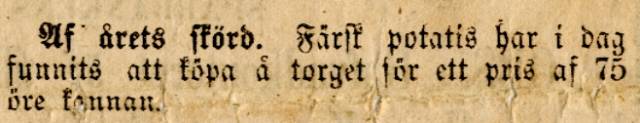 Af årets skörd. Färsk potatis har i dag
funnits att köpa å torget för ett pris af 75
öre kannan.